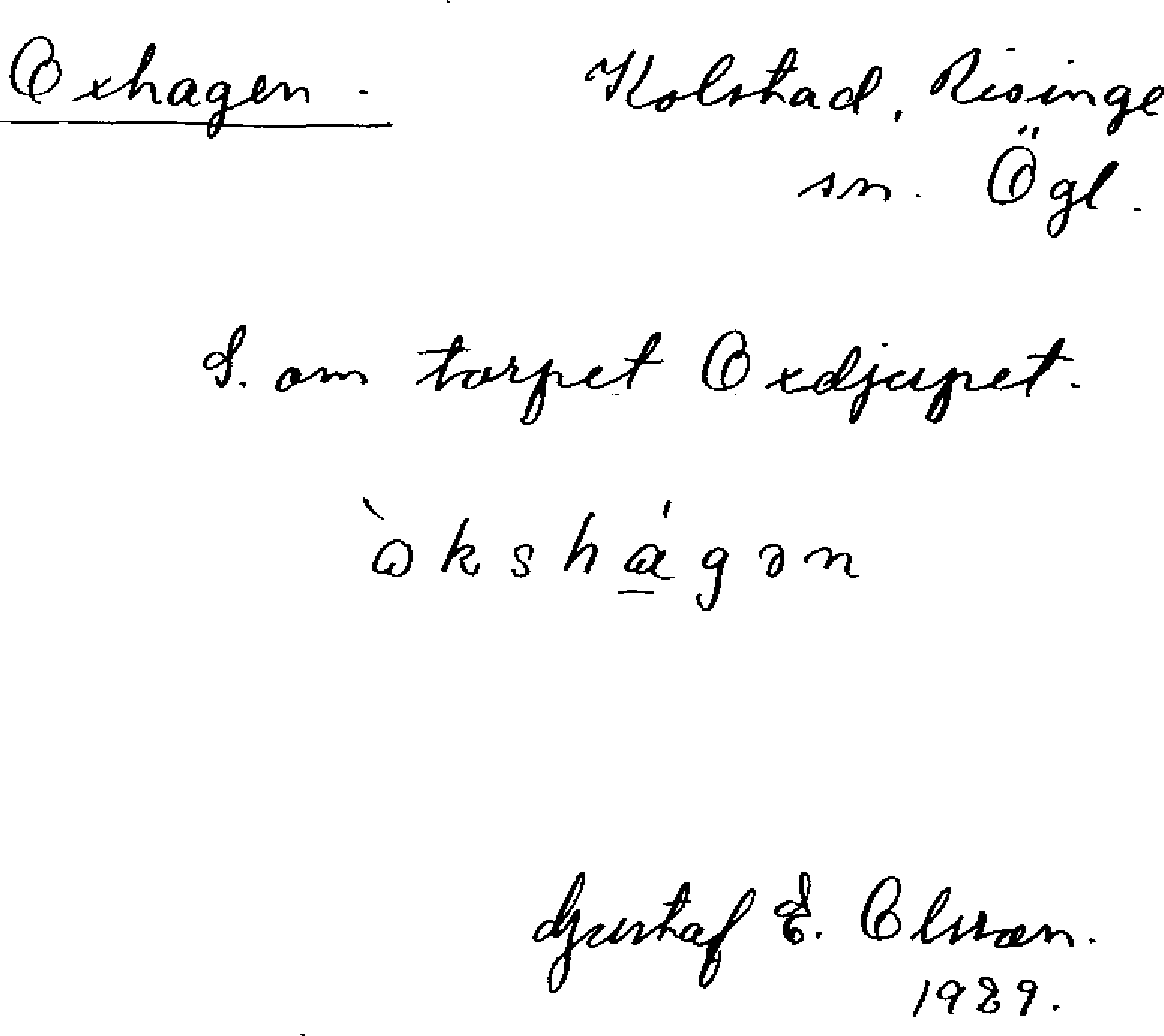 Oxhagen. Kolstad, Risinge
sn. Ögl.
S. om torpet Oxdjupet.
ὼkshɑ̲́gən
Gustaf E. Olsson.
1929.